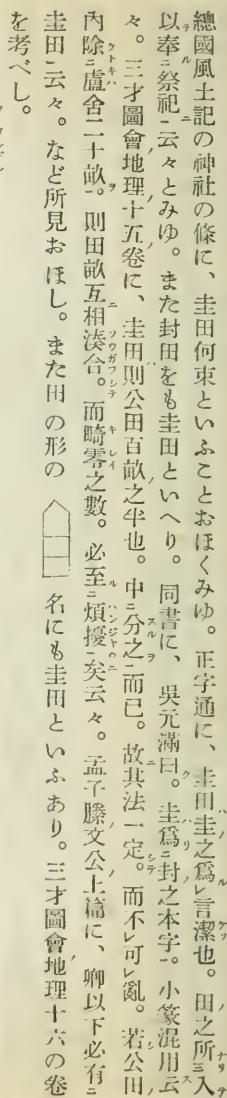 總國風土記の神社の條に、圭田何束といふことおほくみゆ。正字通に、圭田圭之爲レ言潔也。田之所三入
以奉二祭祀一云々とみゆ。また封田をも圭田といへり。同書に、吳元滿曰。圭爲二封之本字一。小篆混用云
々。三才圖會地理十五卷に、圭田則公田百畝之半也。中二分之一而已。故其法一定。而不レ可レ亂。若公田
內除二盧舍二十畝一。則田畝互相湊合。而畸零之數。必至二煩擾一矣云々。孟子滕文公上篇に、卿以下必有二
圭田一云々。など所見おほし。また田の形の 名にも圭田といふあり。三才圖會地理十六の卷
を考べし。